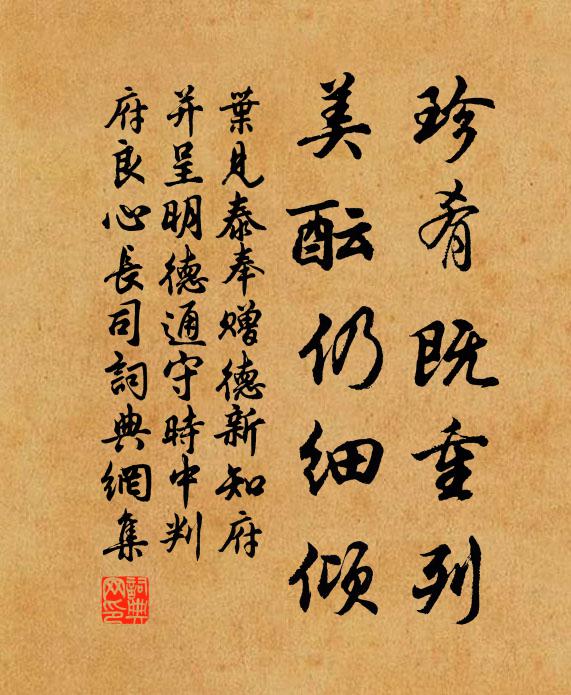 珍肴既重列
美酝仍细倾
葉見泰奉赠德新知府
并呈明德通守時中判
府良心長司詞典網集
詞典网印